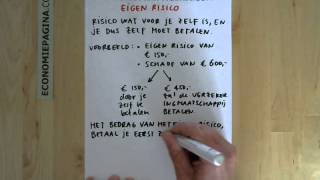 EIGEN RISICO
RISICO WAT VOOR JE ZELF IS, EN
JE DUS ZELF MOET BETALEN.
VOORBEELD: • EIGEN RISICO VAN
€ 150,-
• SCHADE VAN € 600,-
€ 150,- € 450,-
door je zal de VERZEKER
zelf te INGMAATSCHAPPIJ
betalen BETALEN
HET BEDRAG VAN HET RISICO,
BETAAL JE EERST
ECONOMIEPAGINA.COM